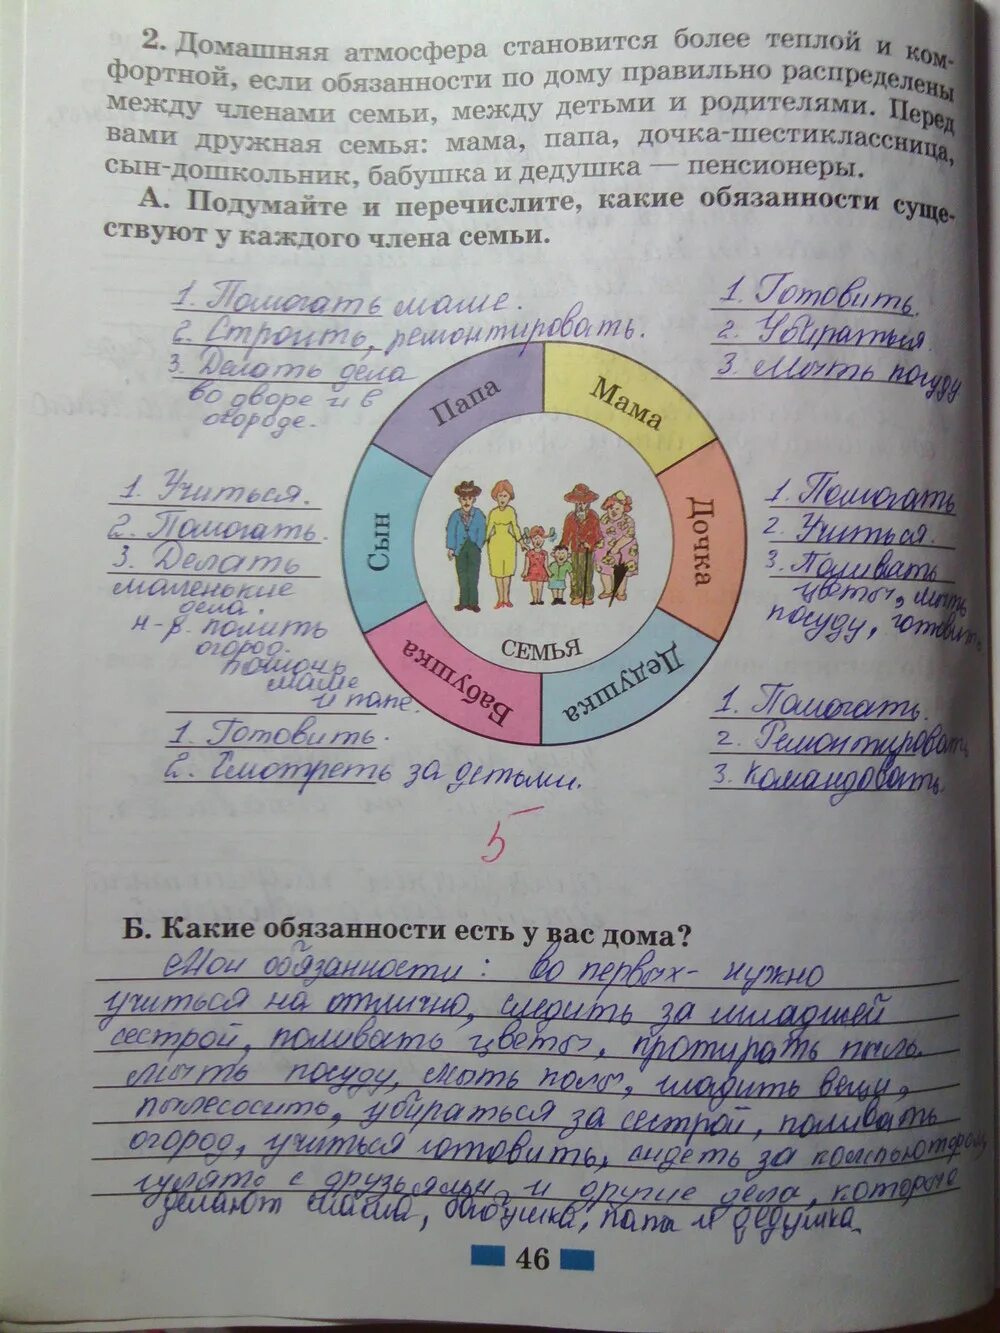 2. Домашняя атмосфера становится более теплой и ком-
фортной, если обязанности по дому правильно распределены
между членами семьи, между детьми и родителями. Перед
вами дружная семья: мама, папа, дочка-шестиклассница,
сын-дошкольник, бабушка и дедушка — пенсионеры.
А. Подумайте и перечислите, какие обязанности суще-
ствуют у каждого члена семьи.
1. Помогать маме.
2. Строить, ремонтировать.
3. Делать дела
во дворе и в
огороде.
1. Готовить.
2. Убираться.
3. Мыть посуду
Папа
Мама
Сын
Дочка
Бабушка
Дедушка
СЕМЬЯ
1. Учиться.
2. Помогать.
3. Делать
маленькие
дела.
н-р. полить
огород.
помочь
маме
и папе.
1. Помогать
2. Учиться.
3. Поливать
цветы, мыть
посуду, готовить
1. Готовить.
2. Смотреть за детьми.
1. Помогать.
2. Ремонтировать
3. Командовать.
5
Б. Какие обязанности есть у вас дома?
Мои обязанности: во первых- нужно
учиться на отлично, следить за младшей
сестрой, поливать цветы, протирать пыль,
мыть посуду, мыть полы, гладить вещи,
пылесосить, убираться за сестрой, поливать
огород, учиться готовить, сидеть за компьютером,
гулять с друзьями и другие дела, которые
делают мама, бабушка, папа и дедушка.
46